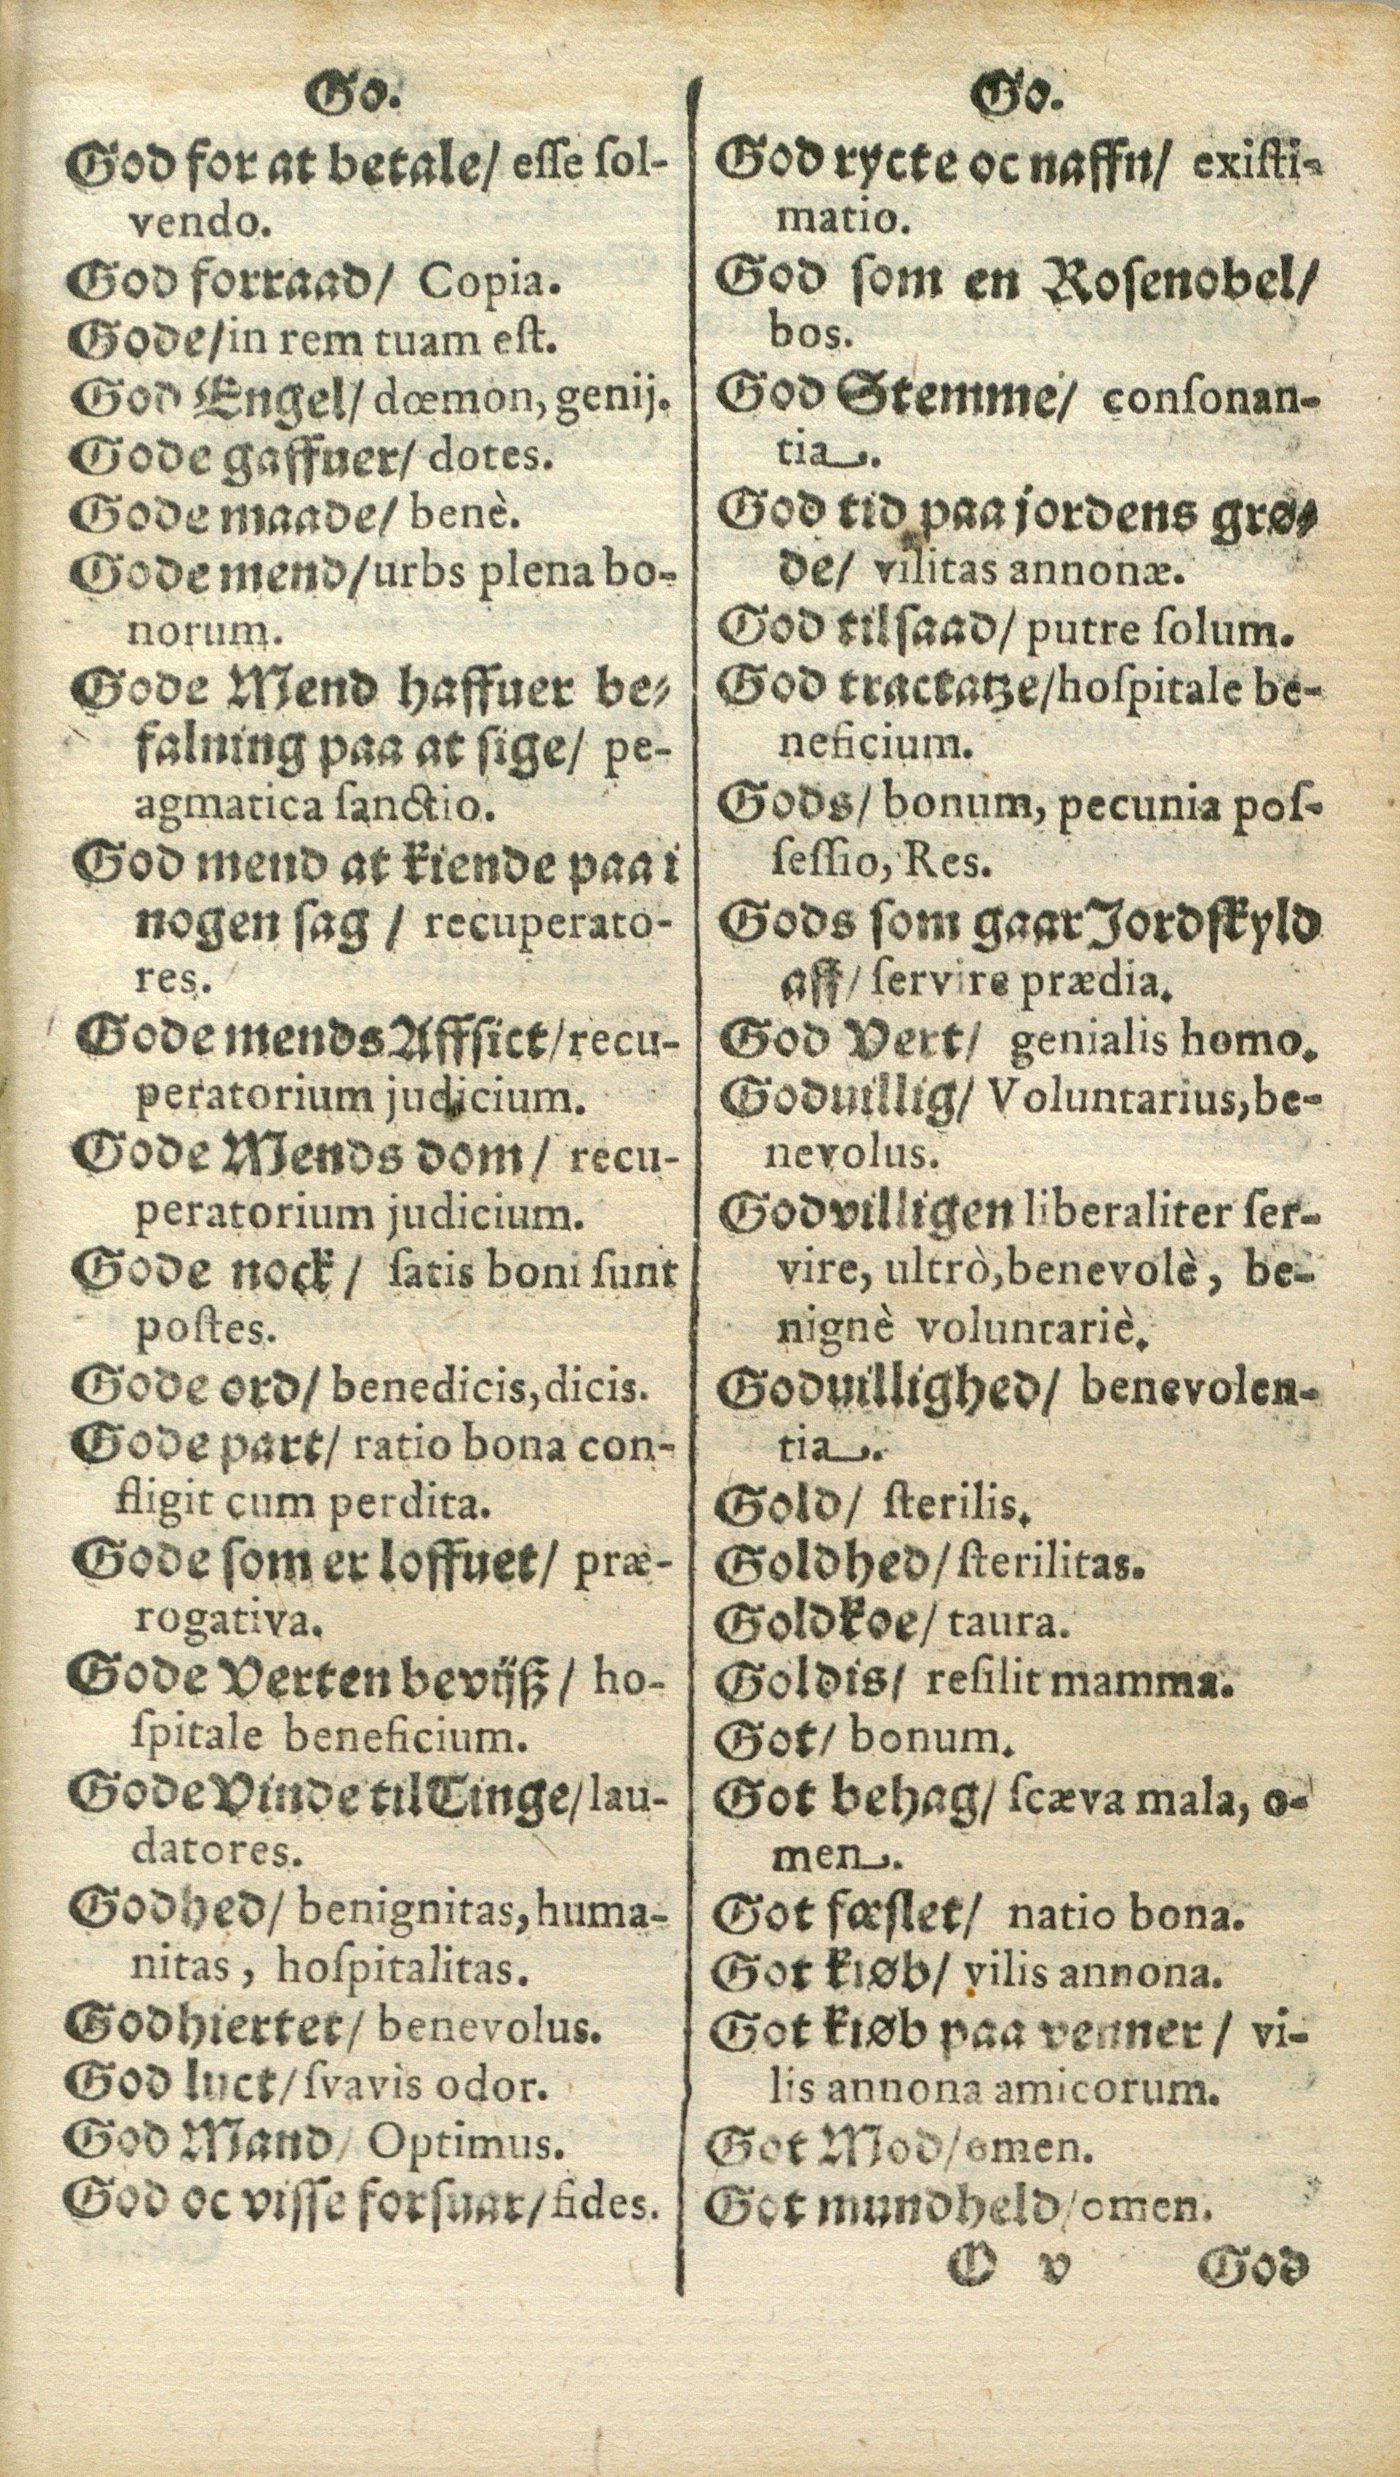 Go.
God for at betale/ eſſe ſol-
vendo.
God forraad/ Copia.
Gode/in rem tuam eſt.
God Engel/ dœmon, genij.
Gode gaffuer/ dotes.
Gode maade/ benè.
Gode mend/urbs plena bo-
norum.
Gode Mend haffuer be-
falning paa at sige/ pe-
agmatica ſanctio.
God mend at kiende paa i
nogen sag / recuperato-
res.
Gode mends Affsict/recu-
peratorium judicium.
Gode Mends dom/ recu-
peratorium judicium.
Gode nock/ ſatis boni ſunt
poſtes.
Gode ord/ benedicis,dicis.
Gode part/ ratio bona con-
fligit cum perdita.
Gode som er loffuet/ præ-
rogativa.
Gode Verten bevijß/ ho-
ſpitale beneficium.
Gode Vinde til Tinge/lau-
datores.
Godhed/ benignitas,huma-
nitas, hoſpitalitas.
Godhiertet/ benevolus.
God luct/ſvavis odor.
God Mand/ Optimus.
God oc visse forsuar/fides.
Go.
God rycte oc naffn/ exiſti-
matio.
God som en Rosenobel/
bos.
God Stemme/ conſonan-
tia.
God tid paa jordens grø-
de/ vilitas annonæ.
God til saad/ putre ſolum.
God tractatze/hoſpitale be-
neficium.
Gods/ bonum, pecunia poſ-
ſeſſio, Res.
Gods som gaar Jordskyld
aff/ ſervire prædia.
God Vert/ genialis homo.
Goduillig/ Voluntarius,be-
nevolus.
Godvilligen liberaliter ſer-
vire, ultrò,benevolè, be-
nignè voluntariè.
Goduillighed/ benevolen-
tia.
Gold/ ſterilis.
Goldhed/ſterilitas.
Goldkoe/ taura.
Goldis/ reſilit mamma.
Got/ bonum.
Got behag/ ſcæva mala, o-
men.
Got fæslet/ natio bona.
Got kiøb/ vilis annona.
Got kiøb paa venner/ vi-
lis annona amicorum.
Got Mod/omen.
Got mundheld/omen.
O v God